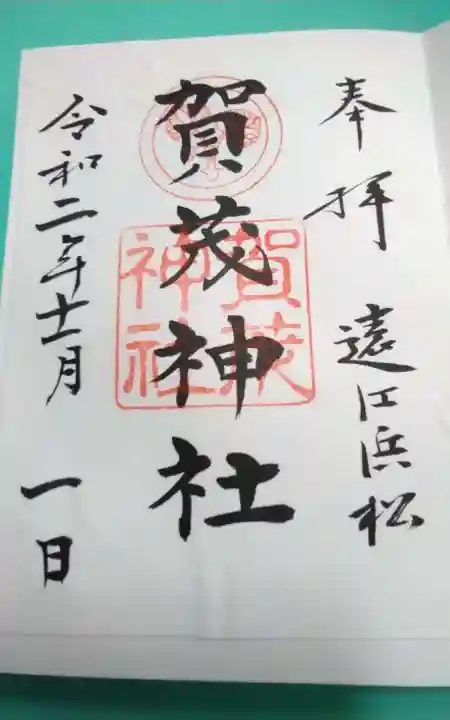 奉拝 遠江浜松
賀茂神社
賀茂
神社
令和二年十一月 一日